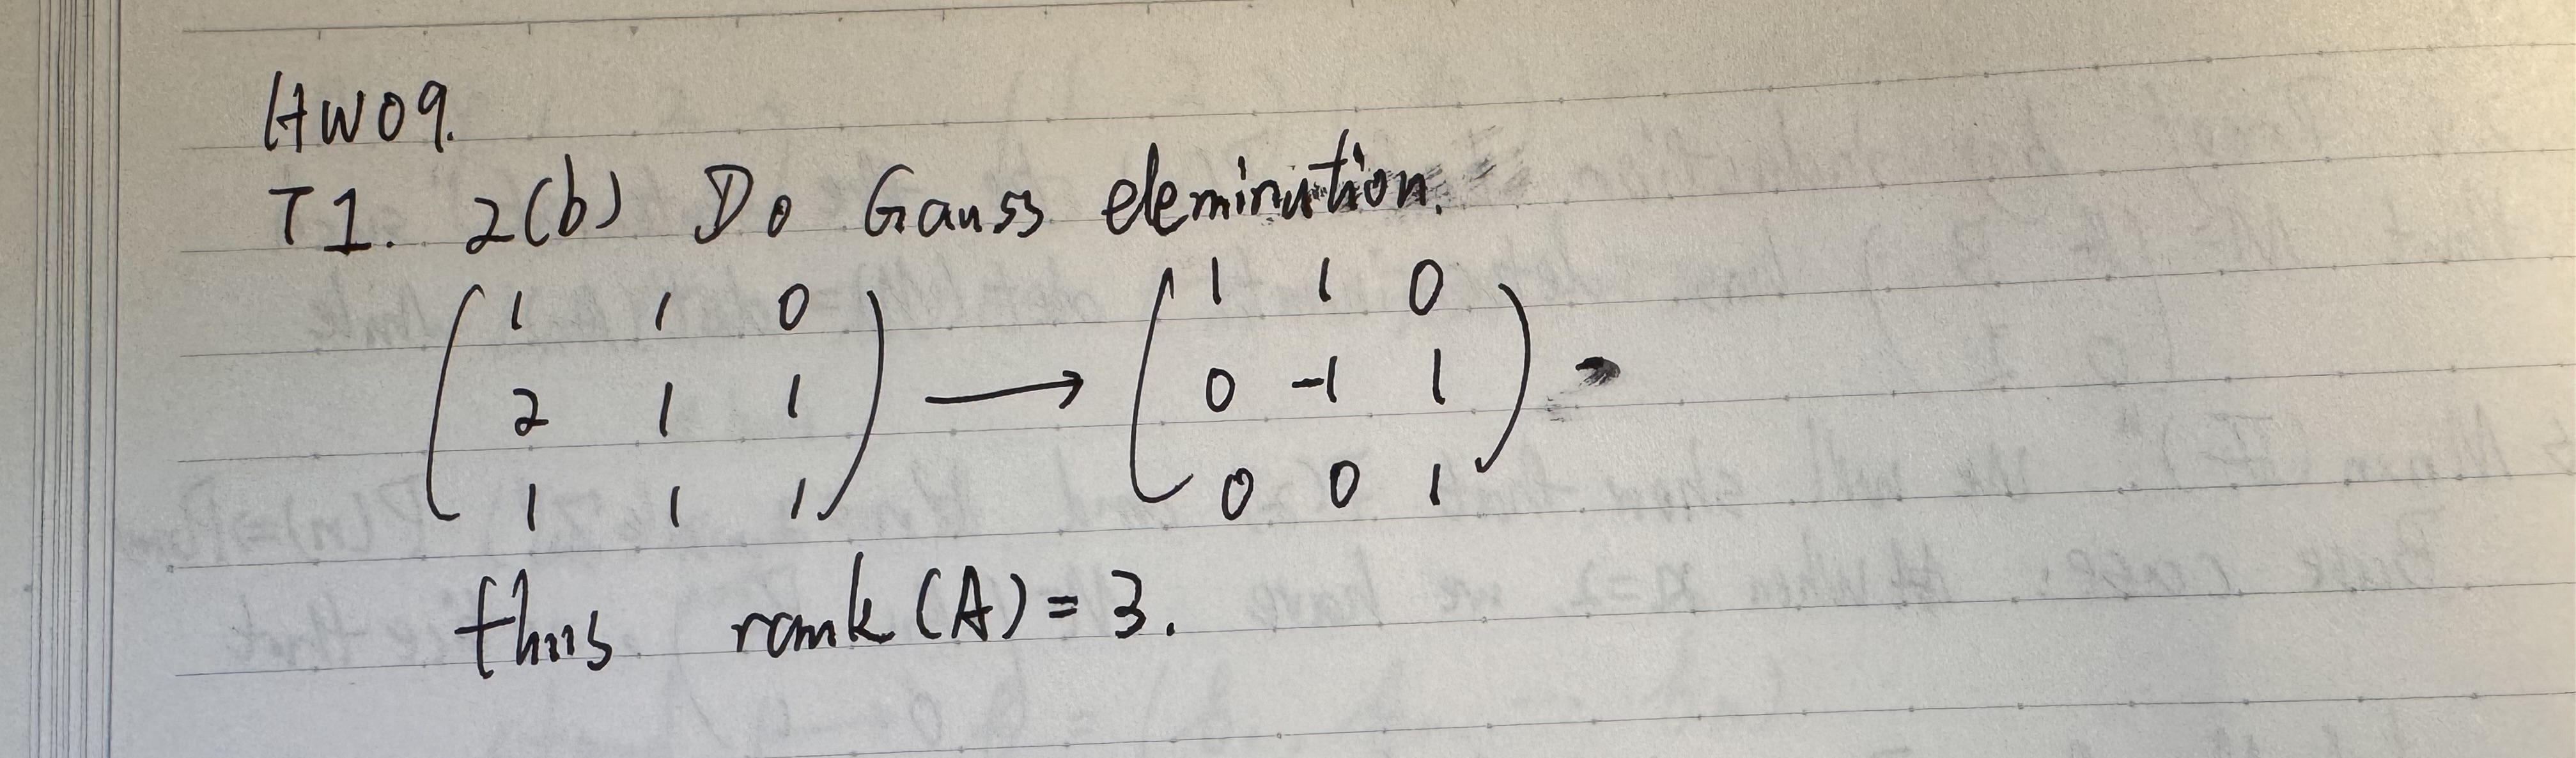 HW09.
T1. 2(b) Do Gauss elemination.
( 1 1 0 ) ( 1 1 0 )
( 2 1 1 ) → ( 0 -1 1 )
( 1 1 1 ) ( 0 0 1 )
thus rank (A) = 3.